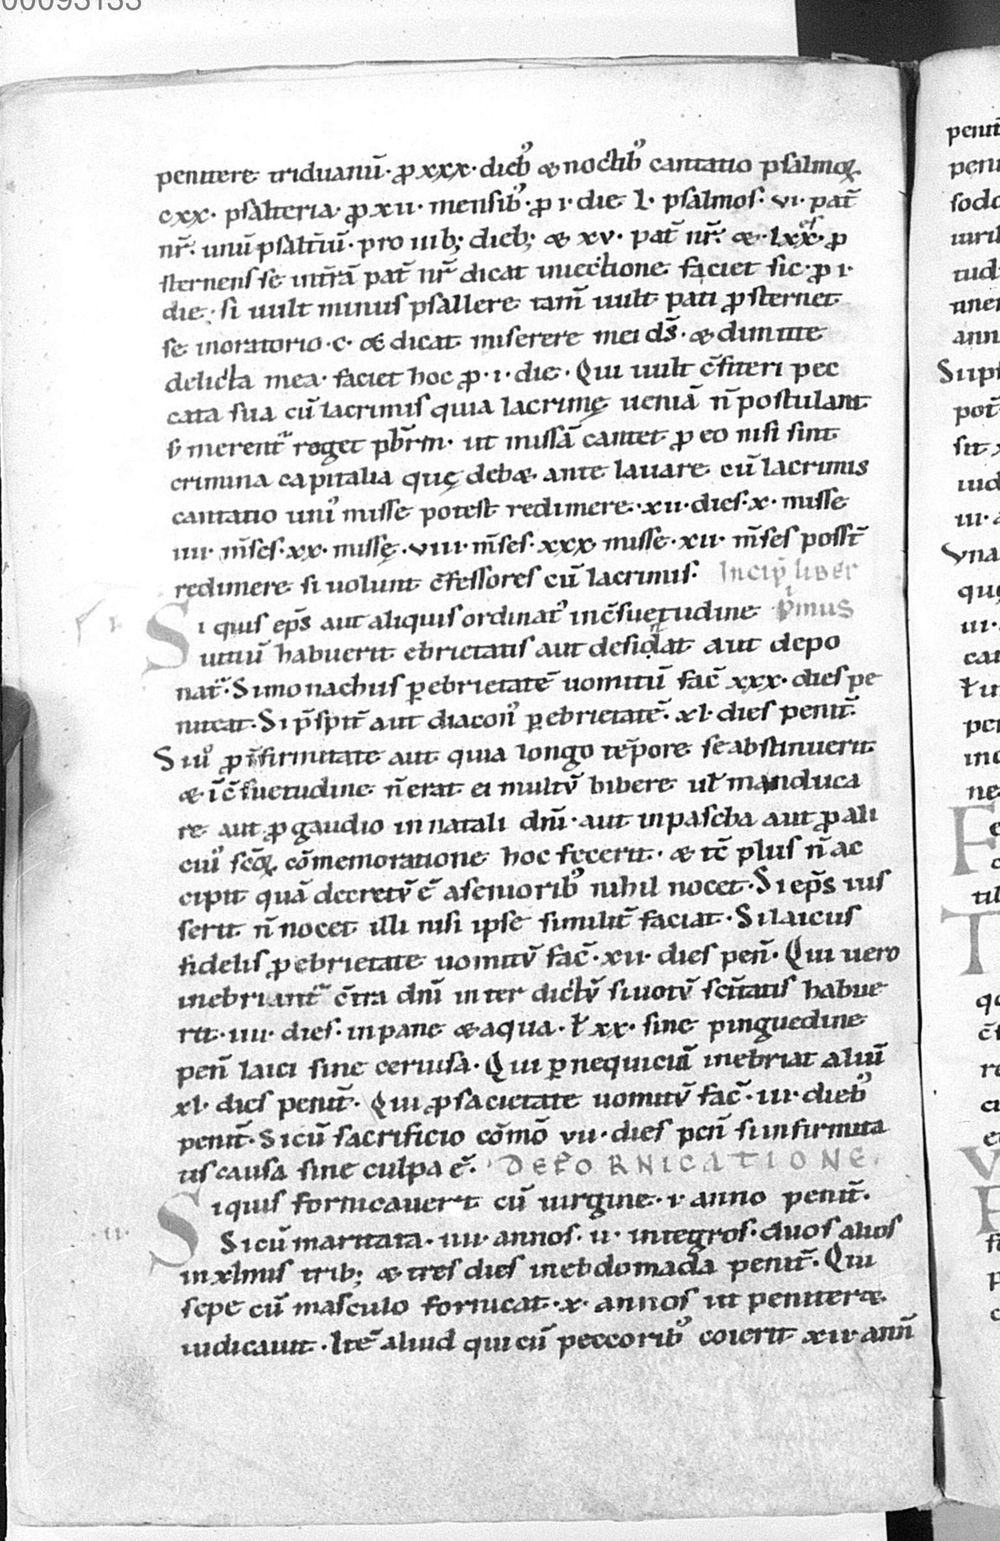 00093133
penitere triduanū· ꝓ xxx· dieb᷒ & noctib᷒ cantatio psalmoꝝ
cxx· psalteria ꝓ xii· mensib᷒· ꝓ i· die l· psalmos· vi· pat̄
nr̄· unū psaltīū· pro iii b; dieb; & xv· pat̄ nr̄· & lxx· ꝓ
sternens se pat̄ nr̄ dicat faciet sic· ꝓ i·
die· si uult minus psallere tam̄ uult pati ꝓsternet
se inoratorio· c· & dicat miserere mei ds̄· & dimitte
delicta mea· faciet hoc ꝓ· i· die· Qui uult c̄fiteri pec
cata sua cū lacrimis quia lacrimę ueniā n̄ postulant
s; merent᷑ roget pbr̄m· ut missā cantet ꝓ eo nisi sint
crimina capitalia quę deb& ante lauare cū lacrimis
cantatio uni᷒ misse potest redimere· xii· dies· x· misse
iiii· m̄ses· xx· missę· viii· m̄ses· xxx· misse· xii· m̄ses posst̄
redimere si uolunt c̄fessores cū lacrimis· Incip̄ liber
Si quis ep̄s aut aliquis ordinat᷒ inc̄suetudine p̄mus
uitiū habuerit ebrietatis aut desidat aut depo
nat᷑· Si monachus ꝑ ebrietatē uomitū fac̄ xxx· dies pe
niteat· Si p̄sp̄it̄ aut diacon᷒ ꝑ ebrietatē· xl· dies penit̄·
Si u᷒ ꝓ īfirmitate aut quia longo tēpore se abstinuerit
& īc̄suetudine n̄ erat ei multū bibere ul̄ manduca
re aut ꝓ gaudio in natali dnī· aut in pascha aut ꝓ ali
cui᷒ sc̄oꝝ cōmemoratione hoc fecerit· & tc̄ plus n̄ ac
cipit quā decretū ē a seniorib᷒ nihil nocet· Si ep̄s ius
serit n̄ nocet illi nisi ipse similit̄ faciat· Si laicus
fidelis ꝓ ebrietate uomitū fac̄· xii· dies pen̄· Qui uero
inebriant᷑ c̄tra dnī inter dictū si uotū sc̄itatis habue
rit· iiii· dies· in pane & aqua· l̄ xx· sine pinguedine
pen̄ laici sine ceruisa· Qui ꝑ nequiciā inebriat aliū
xl· dies penit̄· Qui ꝓ sacietate uomitū fac̄· iii· dieb᷒
penit̄· Si cū sacrificio cōmō vii· dies pen̄ si infirmita
tis causa sine culpa ē· DE FORNICATIONE·
Si quis fornicauerit cū uirgine· i· anno penit̄·
·ii· Si cū maritata· iiii· annos· ii· integros· duos alios
in xlmis trib; & tres dies in ebdomada penit̄· Qui
sepe cū masculo fornicat· x· annos ut peniter&
iudicauit· Itē aliud qui cū peccorib᷒ coierit xii ann̄